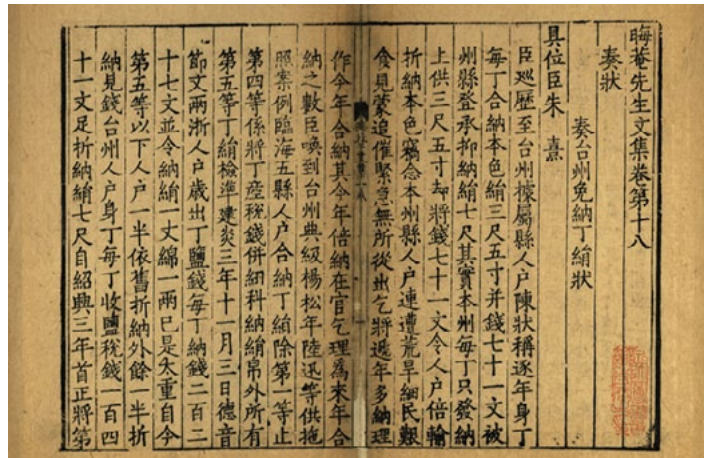 晦菴先生文集卷第十八
奏狀
奏台州免納丁絹狀
具位臣朱熹
臣巡歷至台州據屬縣人戶陳狀稱逐年身丁
每丁合納本色絹三尺五寸并錢七十一文被
州縣登承抑納絹七尺其實本州每丁只發納
上供三尺五寸却將錢七十一文令人戶倍輸
折納本色竊念本州縣人戶連遭荒旱細民艱
食見蒙追催緊急無所從出乞將逓年多納理
作今年合納其今年倍納在官乞理為來年合
納之數臣喚到台州典級楊松年陸迅等供拖
照案例臨海五縣人戶合納丁絹除第一等止
第四等係將丁產稅錢併細科納絹帛外所有
第五等丁絹檢準建炎三年十一月三日德音
節文兩浙人戶歲出丁鹽錢每丁納錢二百二
十七文並令納絹一丈綿一兩已是太重自今
第五等以下人戶一半依舊折納外餘一半折
納見錢台州人戶身丁每丁收鹽稅錢一百四
十一文足折納絹七尺自紹興三年首正將第